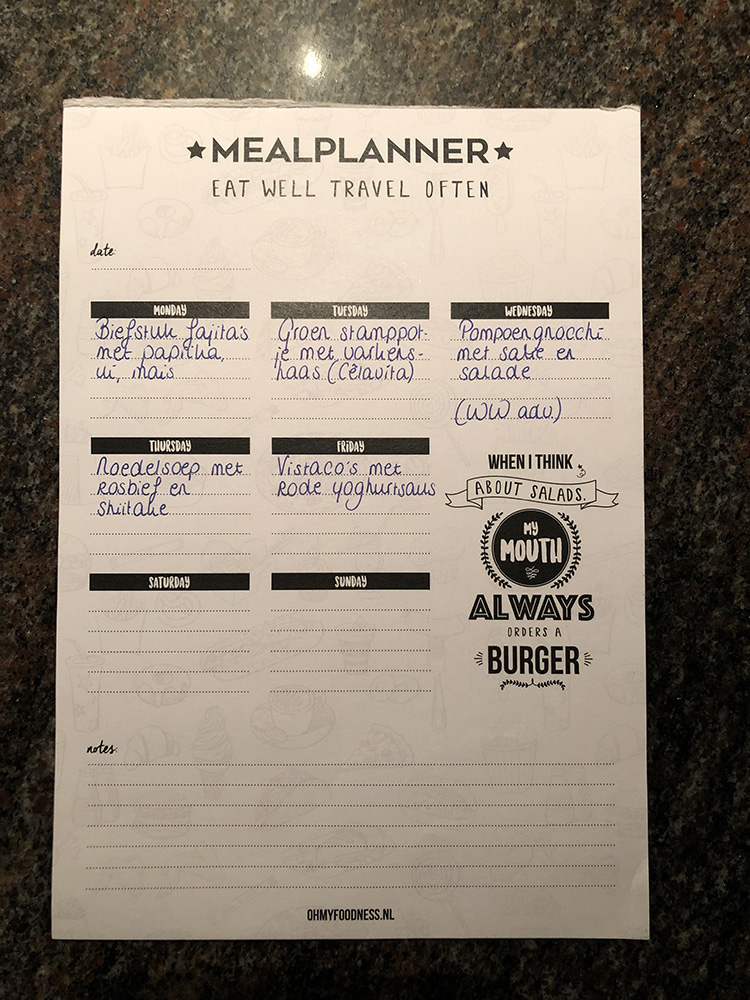 ★MEALPLANNER★
EAT WELL TRAVEL OFTEN
date:
MONDAY
Biefstuk fajita's
met paprika,
ui, mais
TUESDAY
Groen stamppot-
je met varkens-
haas (Célavita)
WEDNESDAY
Pompoengnocchi
met salie en
salade
(WW adv.)
THURSDAY
Noedelsoep met
Rosbief en
Shiitake
FRIDAY
Vistaco's met
Rode yoghurtsaus
WHEN I THINK
ABOUT SALADS,
MY
MOUTH
ALWAYS
ORDERS A
BURGER
SATURDAY
SUNDAY
notes:
OHMYFOODNESS.NL